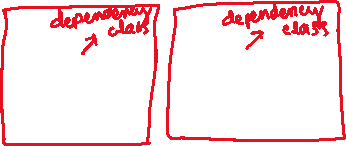 dependency
class
dependency
class